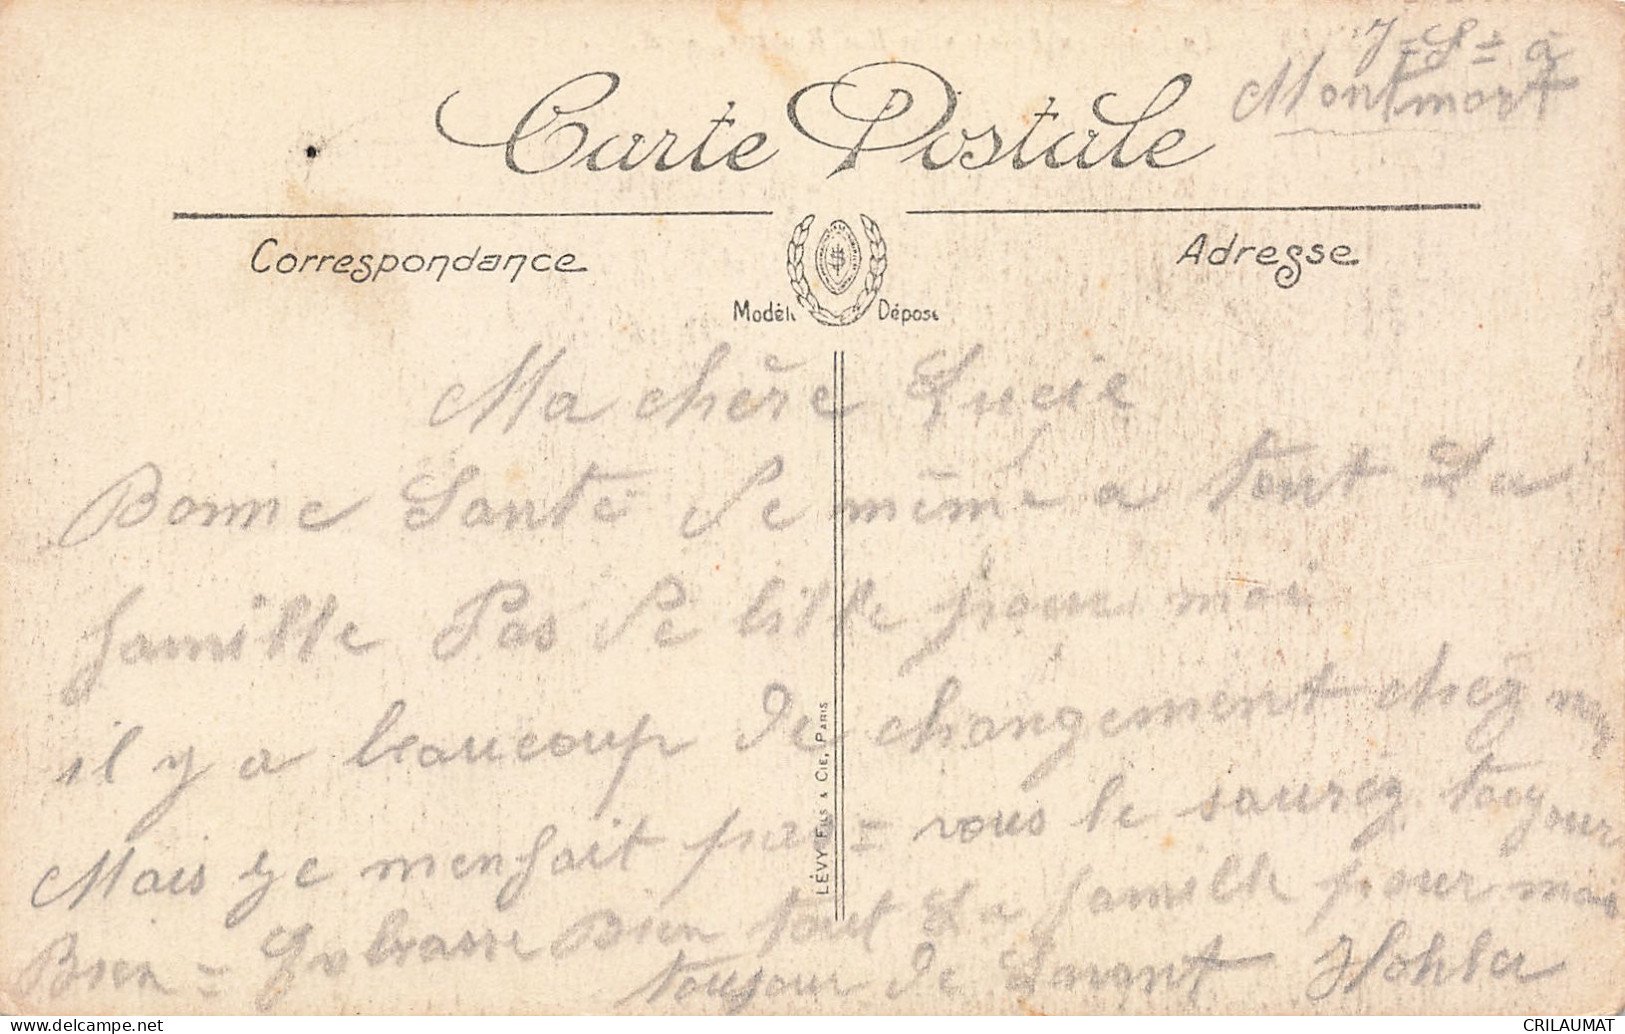 J=S= à
Montmort
Carte Postale
Correspondance
Adresse
Modèle Déposé
Ma chère Lucie
Bonne Santé de même a tout La
famille Pas de bille pour moi
il y a beaucoup de changement chéz moi
Mais ye m'enfait pas = vous le sauréz toujour
Bien = Enbrasse Bien tout La famille pour moi
toujour de Lorant Hohler
LÉVY FILS & CIE, PARIS
CRILAUMAT